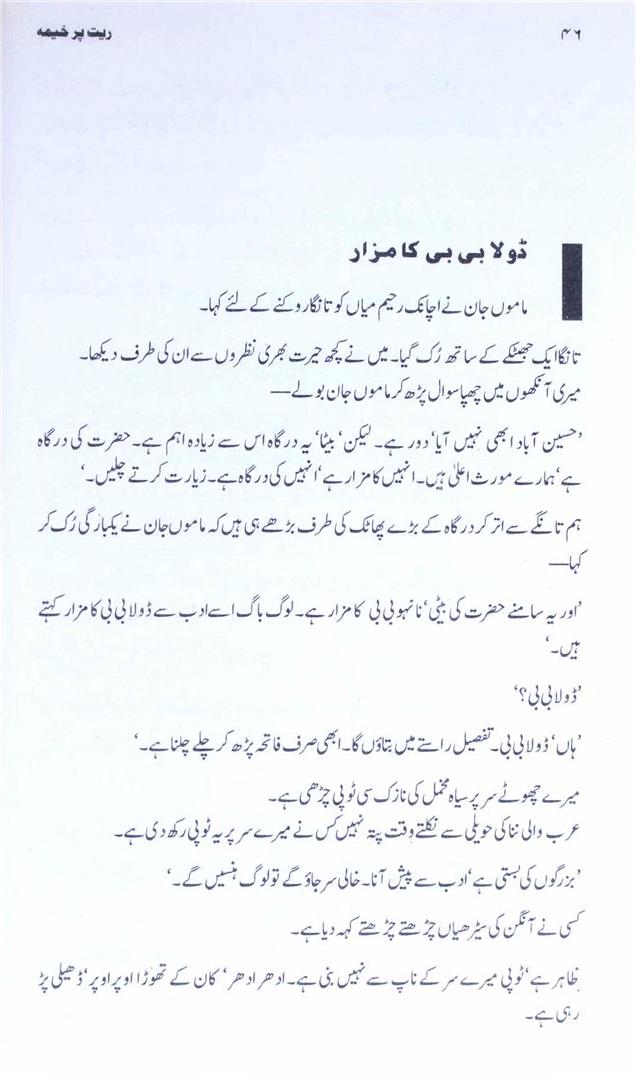 ۴۶
ریت پر خیمہ
ڈولا بی بی کا مزار
ماموں جان نے اچانک رحیم میاں کو تانگا روکنے کے لئے کہا۔
تانگا ایک جھٹکے کے ساتھ رُک گیا۔ میں نے کچھ حیرت بھری نظروں سے ان کی طرف دیکھا۔
میری آنکھوں میں چھپا سوال پڑھ کر ماموں جان بولے—
’حسین آباد ابھی نہیں آیا‘ دور ہے۔ لیکن‘ بیٹا‘ یہ درگاہ اس سے زیادہ اہم ہے۔ حضرت کی درگاہ
ہے‘ ہمارے مورث اعلیٰ ہیں۔ انہیں کا مزار ہے‘ انہیں کی درگاہ ہے۔ زیارت کرتے چلیں۔‘
ہم تانگے سے اتر کر درگاہ کے بڑے پھاٹک کی طرف بڑھے ہی ہیں کہ ماموں جان نے یکبارگی رُک کر
کہا—
’اور یہ سامنے حضرت کی بیٹی‘ نانہو بی بی کا مزار ہے۔ لوگ باگ اسے ادب سے ڈولا بی بی کا مزار کہتے
ہیں۔‘
’ڈولا بی بی؟‘
’ہاں‘ ڈولا بی بی۔ تفصیل راستے میں بتاؤں گا۔ ابھی صرف فاتحہ پڑھ کر چلے چلنا ہے۔‘
میرے چھوٹے سر پر سیاہ مخمل کی نازک سی ٹوپی چڑھی ہے۔
عرب والی ننا کی حویلی سے نکلتے وقت پتہ نہیں کس نے میرے سر پر یہ ٹوپی رکھ دی ہے۔
’بزرگوں کی بستی ہے‘ ادب سے پیش آنا۔ خالی سر جاؤ گے تو لوگ ہنسیں گے۔‘
کسی نے آنگن کی سیڑھیاں چڑھتے چڑھتے کہہ دیا ہے۔
ظاہر ہے‘ ٹوپی میرے سر کے ناپ سے نہیں بنی ہے۔ ادھر ادھر‘ کان کے تھوڑا اوپر اوپر‘ ڈھیلی پڑ
رہی ہے۔